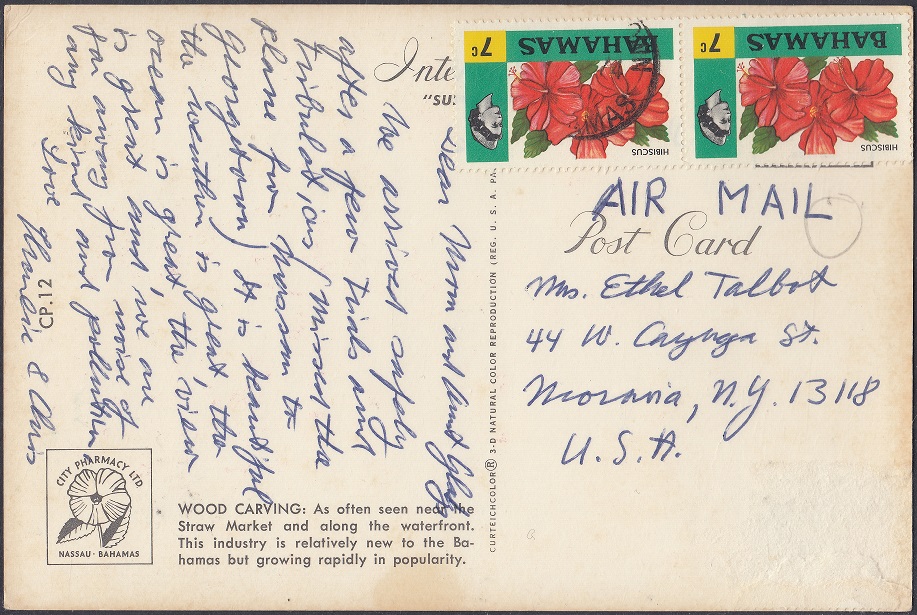 BAHAMAS
7c
HIBISCUS
BAHAMAS
7c
HIBISCUS
MAS
Inte
"SU
AIR MAIL
Post Card
Mrs. Ethel Talbot
44 W. Cayuga St.
Moravia, N.Y. 13118
U.S.A.
Dear Mom and Aunt
We arrived safely
after a few trials and
tribulations (missed the
plane from Nassau to
Georgetown) It is beautiful
the weather is great the
ocean is great, the view
is great and we are
far away from noise of
any kind and pollution
Love
& Chris
CP.12
CURTEICHCOLOR® 3-D NATURAL COLOR REPRODUCTION (REG. U. S. A. PA
CITY PHARMACY LTD
NASSAU - BAHAMAS
WOOD CARVING: As often seen near the
Straw Market and along the waterfront.
This industry is relatively new to the Ba-
hamas but growing rapidly in popularity.